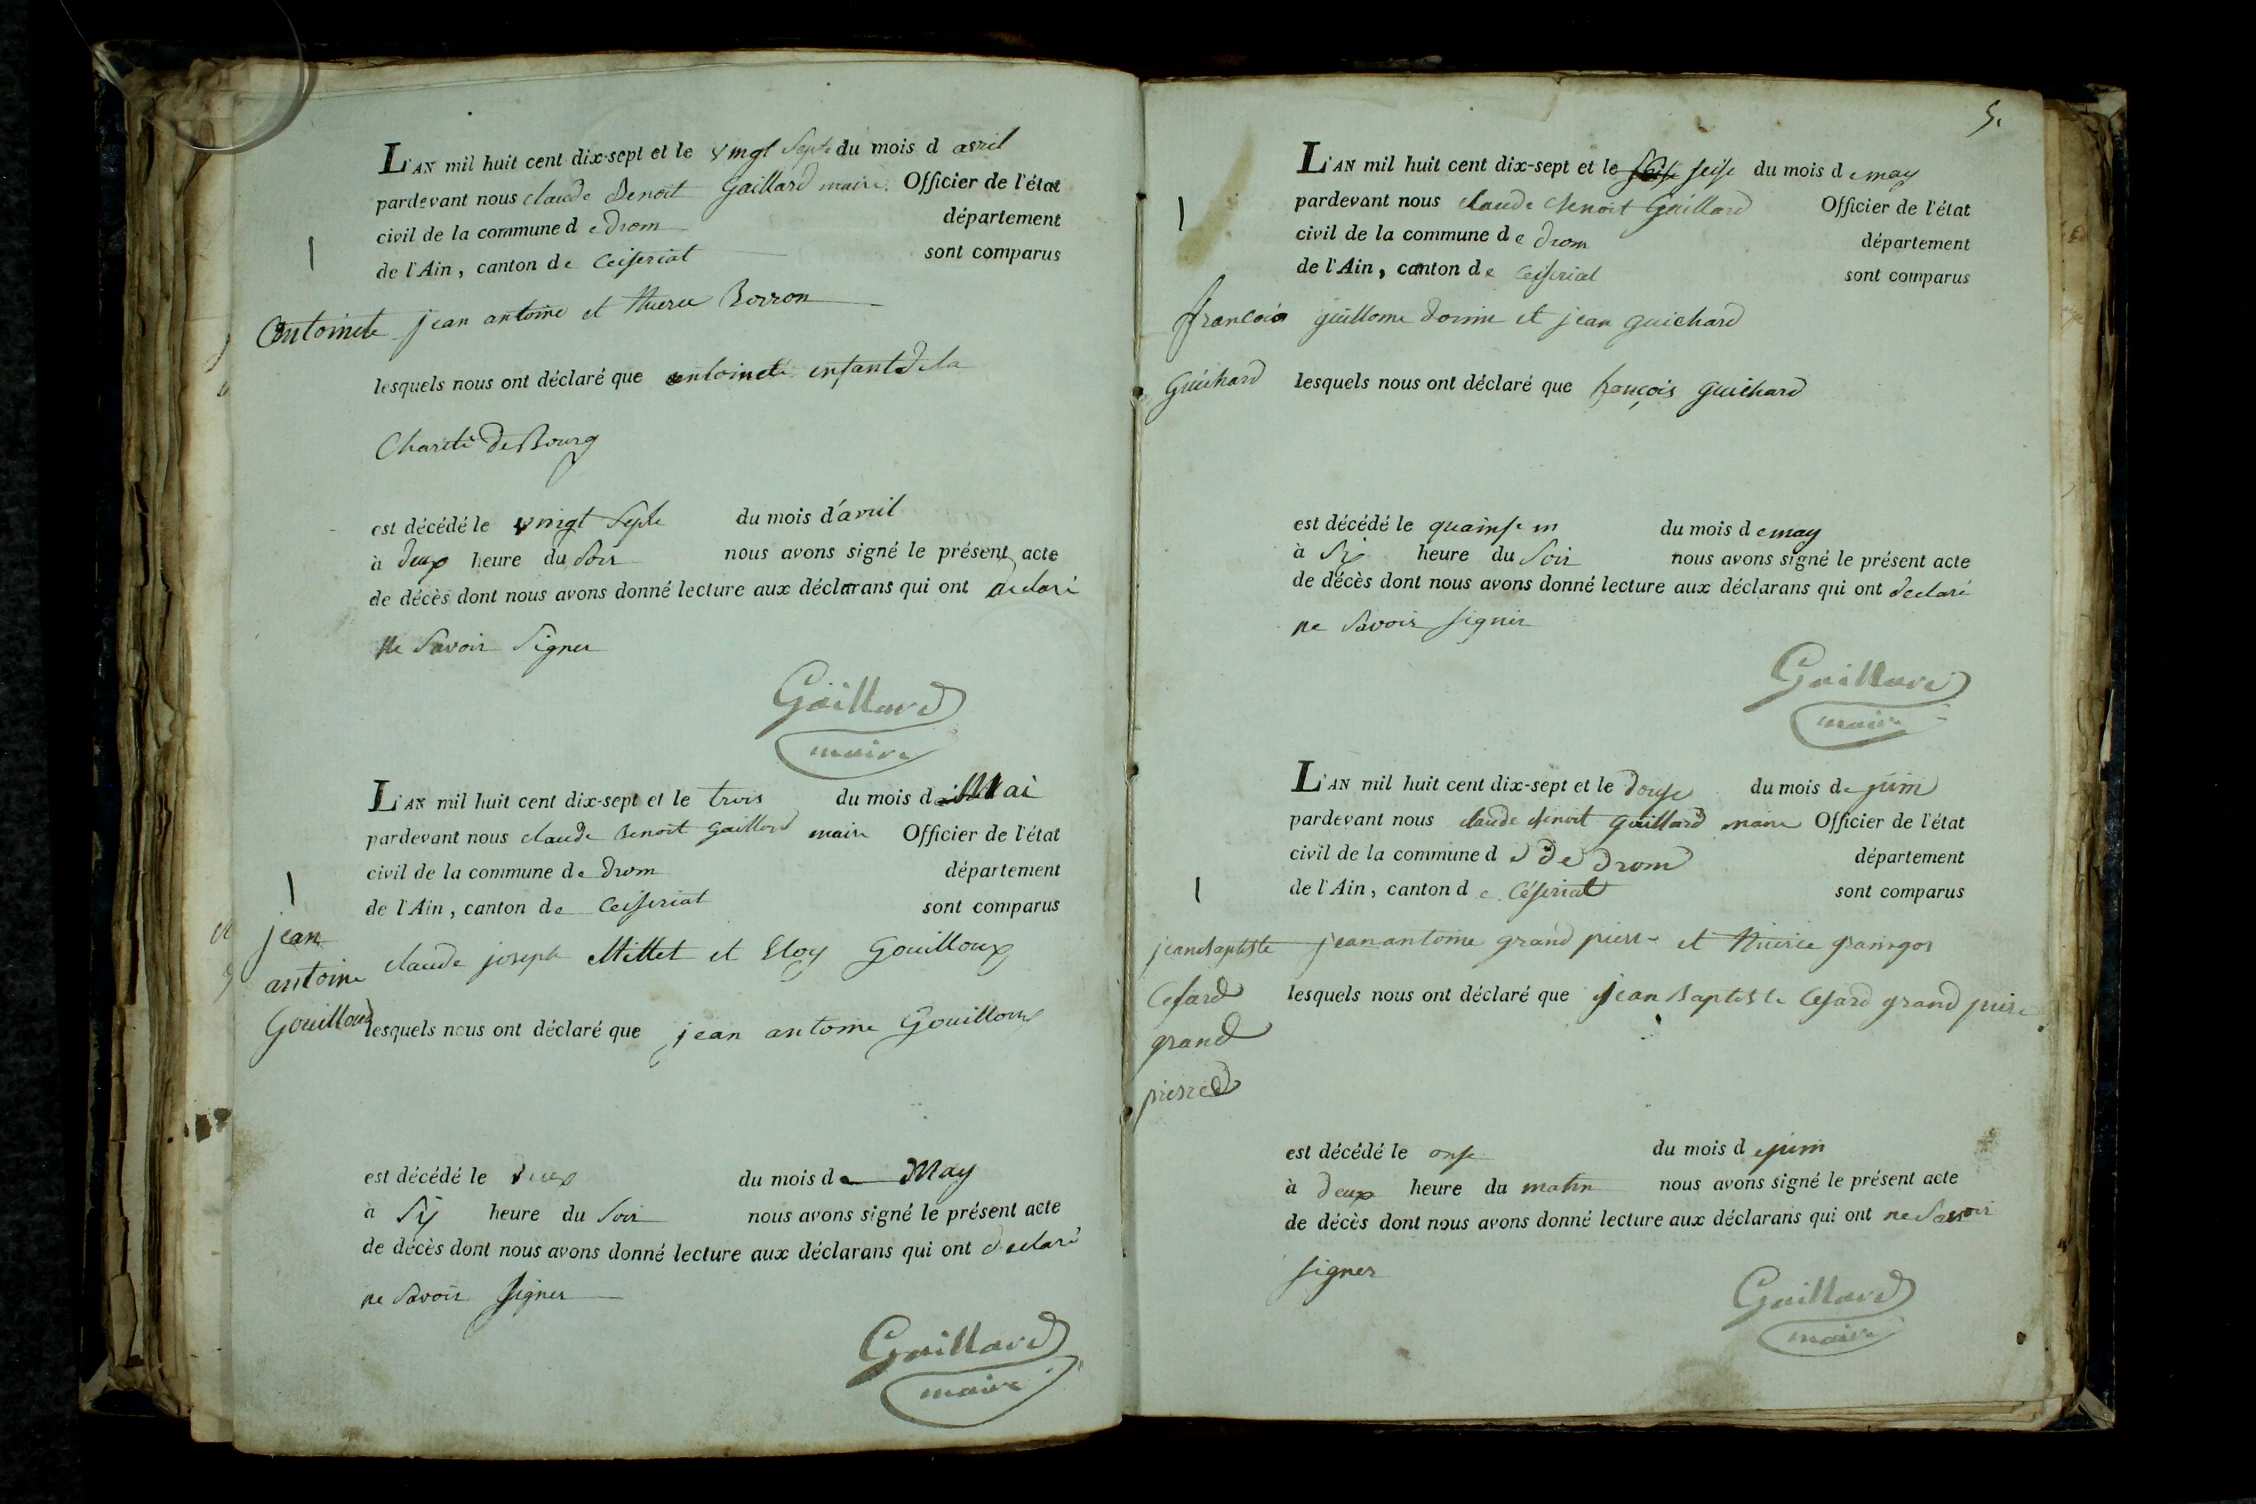 L'AN mil huit cent dix-sept et le vingt septe du mois d avril
pardevant nous claude Benoit Gaillard maire Officier de l'état
civil de la commune d e drom département
de l'Ain, canton de Ceiseriat sont comparus
Antoinete jean antoine et Borron
lesquels nous ont déclaré que antoinete enfant de la
Charité de Bourg
est décédé le vingt septe du mois d'avril
à deux heure du soir nous avons signé le présent acte
de décès dont nous avons donné lecture aux déclarans qui ont declaré
ne savoir signer
Gaillard
maire
L'AN mil huit cent dix-sept et le trois du mois de Mai
pardevant nous claude Benoit Gaillard maire Officier de l'état
civil de la commune de drom département
de l'Ain, canton de Ceiseriat sont comparus
jean
antoine claude joseph Millet et Eloy Gouilloux
Gouilloux lesquels nous ont déclaré que jean antoine Gouilloux
est décédé le deux du mois de May
à six heure du soir nous avons signé le présent acte
de décès dont nous avons donné lecture aux déclarans qui ont declaré
ne savoir signer
Gaillard
maire
5.
L'AN mil huit cent dix-sept et le seise du mois d e may
pardevant nous claude benoit Gaillard Officier de l'état
civil de la commune d e drom département
de l'Ain, canton d e Ceiseriat sont comparus
francois guillome et jean guichard
Guichard lesquels nous ont déclaré que françois guichard
est décédé le quainse du mois d e may
à six heure du soir nous avons signé le présent acte
de décès dont nous avons donné lecture aux déclarans qui ont declaré
ne savoir signer
Gaillard
maire
L'AN mil huit cent dix-sept et le douse du mois de juin
pardevant nous claude benoit gaillard maire Officier de l'état
civil de la commune d e de drom département
de l'Ain, canton d e Céseriat sont comparus
jean Baptiste jean antoine grand pierre et
Cesard lesquels nous ont déclaré que jean Baptiste Cesard grand pierre
grand
pierre
est décédé le onse du mois d e juin
à deux heure du matin nous avons signé le présent acte
de décès dont nous avons donné lecture aux déclarans qui ont ne savoir
signer
Gaillard
maire